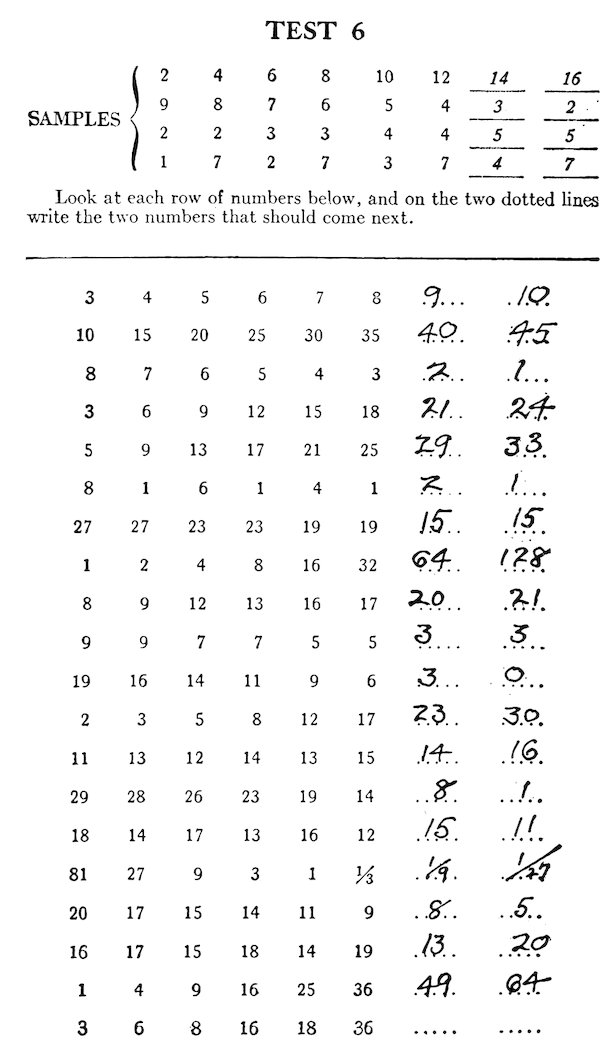 TEST 6
SAMPLES
2 4 6 8 10 12 14 16
9 8 7 6 5 4 3 2
2 2 3 3 4 4 5 5
1 7 2 7 3 7 4 7
Look at each row of numbers below, and on the two dotted lines
write the two numbers that should come next.
3 4 5 6 7 8 9 10
10 15 20 25 30 35 40 45
8 7 6 5 4 3 2 1
3 6 9 12 15 18 21 24
5 9 13 17 21 25 29 33
8 1 6 1 4 1 2 1
27 27 23 23 19 19 15 15
1 2 4 8 16 32 64 128
8 9 12 13 16 17 20 21
9 9 7 7 5 5 3 3
19 16 14 11 9 6 3 0
2 3 5 8 12 17 23 30
11 13 12 14 13 15 14 16
29 28 26 23 19 14 8 1
18 14 17 13 16 12 15 11
81 27 9 3 1 1/3 1/9 1/27
20 17 15 14 11 9 8 5
16 17 15 18 14 19 13 20
1 4 9 16 25 36 49 64
3 6 8 16 18 36 ..... .....